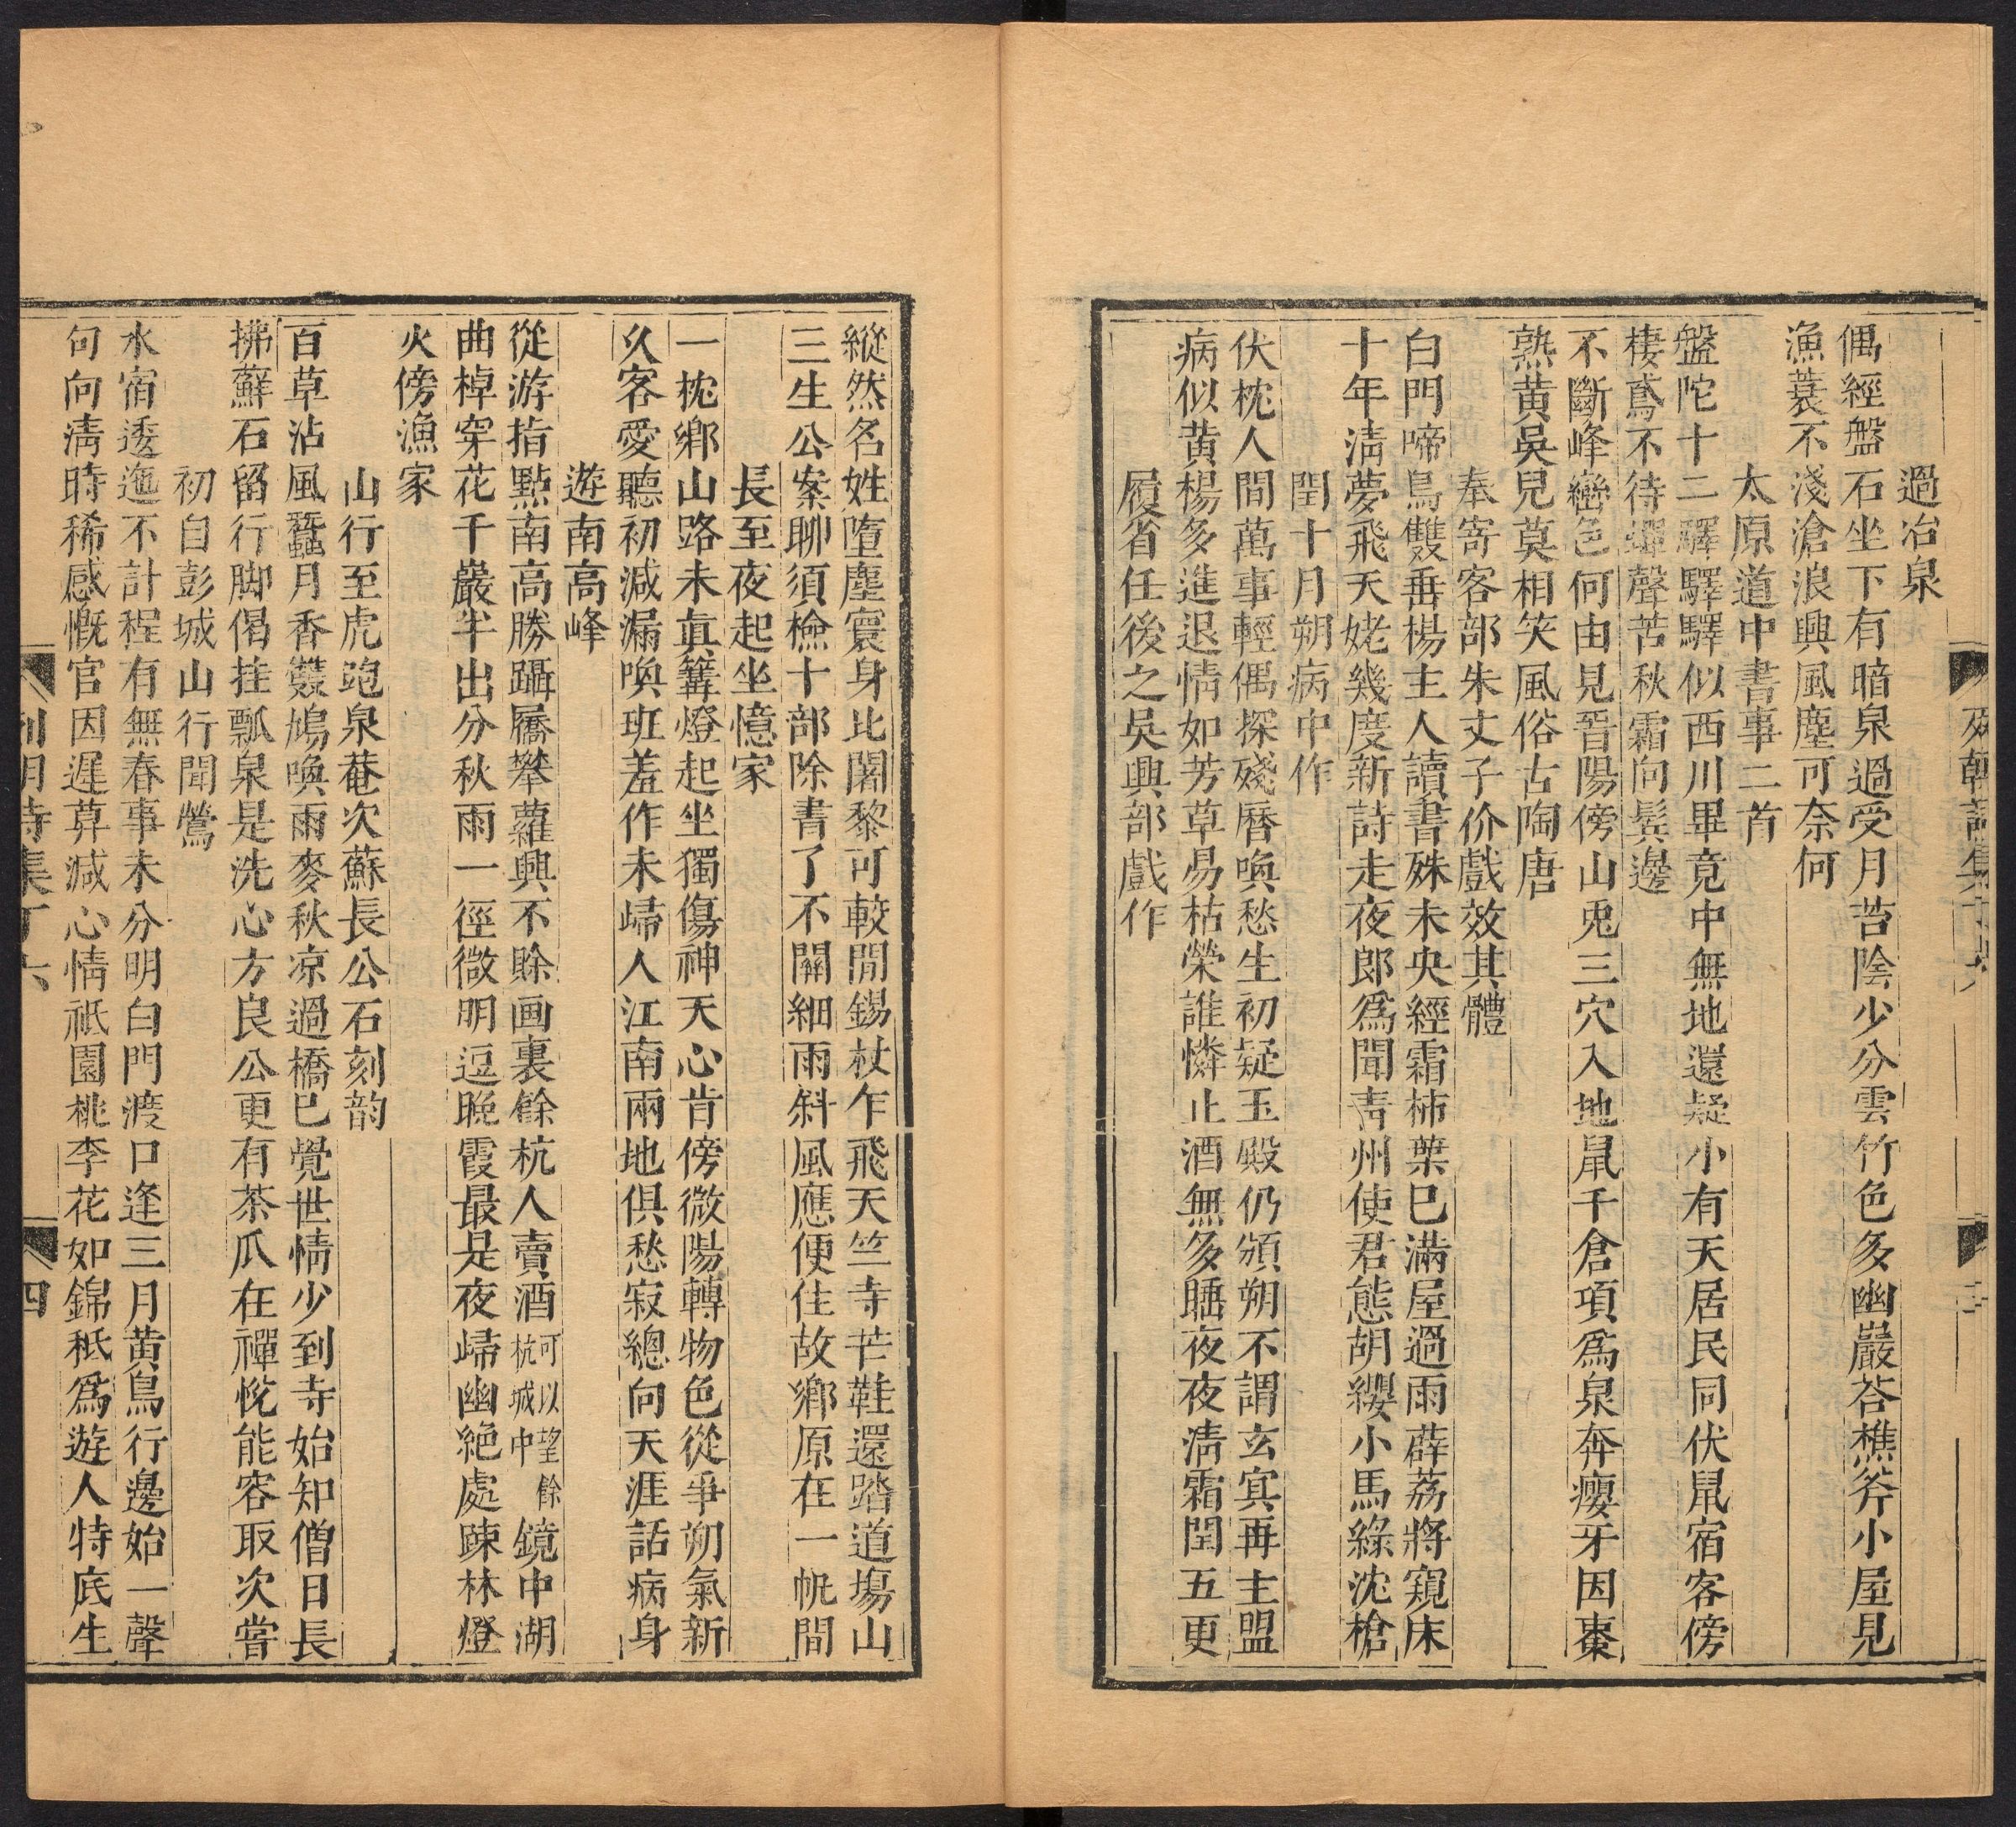 過冶泉
偶經盤石坐下有暗泉過受月苔陰少分雲竹色多幽巖荅樵斧小屋見
漁蓑不淺滄浪興風塵可奈何
太原道中書事二首
盤陀十二驛驛驛似西川畢竟中無地還疑小有天居民同伏鼠宿客傍
棲鳶不待蟬聲苦秋霜向鬂邊
不斷峰巒色何由見晉陽傍山兎三穴入地鼠千倉項爲泉奔癭牙因棗
熟黄吳兒莫相笑風俗古陶唐
奉寄客部朱丈子价戲效其體
白門啼鳥雙垂楊主人讀書殊未央經霜柿葉巳滿屋過雨薜荔將窺床
十年淸夢飛天姥幾度新詩走夜郎爲聞靑州使君態胡纓小馬綠沈槍
閏十月朔病中作
伏枕人間萬事輕偶探殘曆喚愁生初疑玉殿仍頒朔不謂玄㝠再主盟
病似黄楊多進退情如芳草易枯榮誰憐止酒無多睡夜夜淸霜閏五更
履省任後之吳興部戲作
縱然名姓墮塵寰身比闍黎可較閒錫杖乍飛天竺寺芒鞋還踏道塲山
三生公案聊須檢十部除書了不關細雨斜風應便住故鄉原在一帆間
長至夜起坐憶家
一枕鄉山路未眞篝燈起坐獨傷神天心肯傍微陽轉物色從爭朔氣新
久客愛聽初減漏喚班羞作未歸人江南兩地俱愁寂總向天涯話病身
遊南高峰
從游指點南高勝躡屩攀蘿興不賖画裏餘杭人賣酒可以望餘杭城中鏡中湖
曲棹穿花千巖半出分秋雨一徑微明逗晚霞最是夜歸幽絶處踈林燈
火傍漁家
山行至虎跑泉菴次蘇長公石刻韵
百草沾風蠶月香䨇鳩喚雨麥秋凉過橋巳覺世情少到寺始知僧日長
拂蘚石留行脚偈挂瓢泉是洗心方良公更有茶瓜在禪悅能容取次嘗
初自彭城山行聞鶯
水宿逶迤不計程有無春事未分明白門渡口逢三月黄鳥行邊始一聲
句向淸時稀感慨官因遲暮減心情祇園桃李花如錦秪爲遊人特底生
四